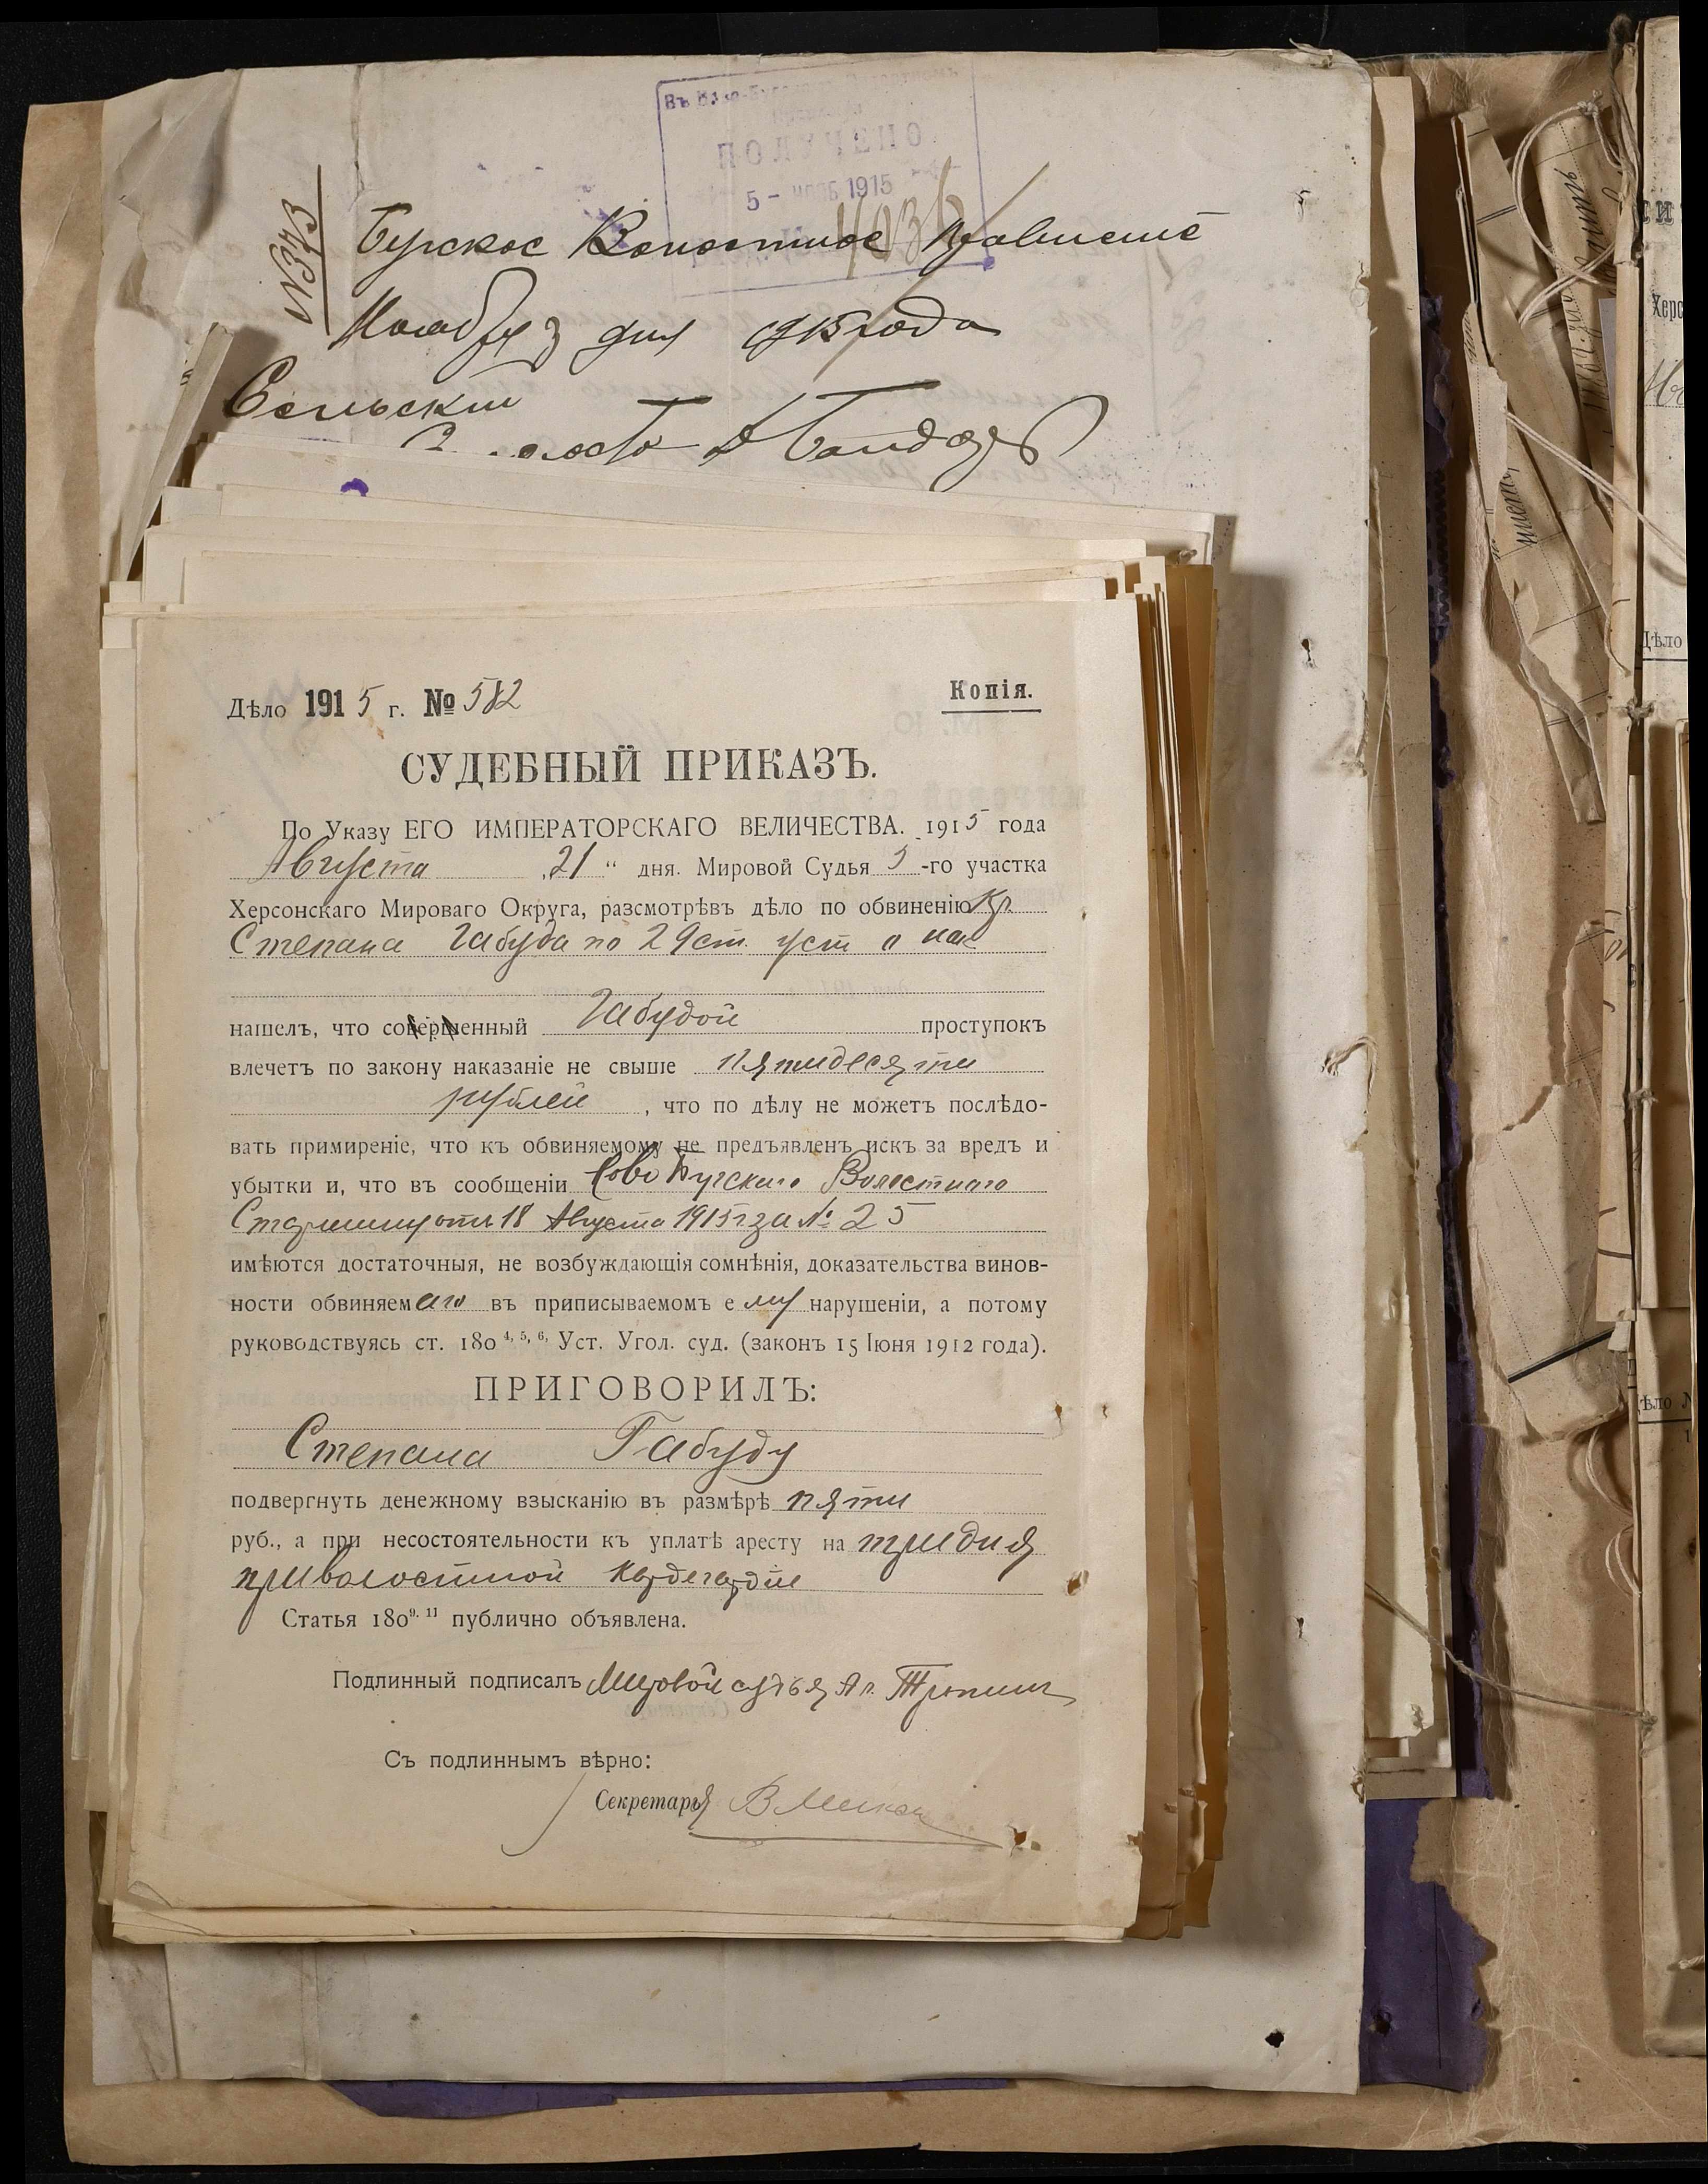 ПОЛУЧЕНО
5 - НОЯБ 1915
№373
Бугское Волостное Правление
Ноября 3 дня 1915 года
Сельский
Дѣло 1915 г. № 582
Копія.
СУДЕБНЫЙ ПРИКАЗЪ.
По Указу ЕГО ИМПЕРАТОРСКАГО ВЕЛИЧЕСТВА. 1915 года
Августа „21“ дня. Мировой Судья 5-го участка
Херсонскаго Мироваго Округа, разсмотрѣвъ дѣло по обвиненію кр.
Степана Габуда по 29 ст. уст о нак
нашелъ, что совершенный Габудой проступокъ
влечетъ по закону наказаніе не свыше пятидесяти
рублей, что по дѣлу не можетъ послѣдо-
вать примиреніе, что къ обвиняемому не предъявленъ искъ за вредъ и
убытки и, что въ сообщеніи Ново Бугскаго Волостнаго
Старшины отъ 18 Августа 1915 г за № 25
имѣются достаточныя, не возбуждающія сомнѣнія, доказательства винов-
ности обвиняемаго въ приписываемомъ ему нарушеніи, а потому
руководствуясь ст. 180 4, 5, 6, Уст. Угол. суд. (законъ 15 Іюня 1912 года).
ПРИГОВОРИЛЪ:
Степана Габуду
подвергнуть денежному взысканію въ размѣрѣ пяти
руб., а при несостоятельности къ уплатѣ аресту на три дня
при волостной кардегардіи
Статья 180 9. 11 публично объявлена.
Подлинный подписалъ Мировой судья Ап. Тропинъ
Съ подлиннымъ вѣрно:
Секретарь
Херс
Дѣло
Дѣло №